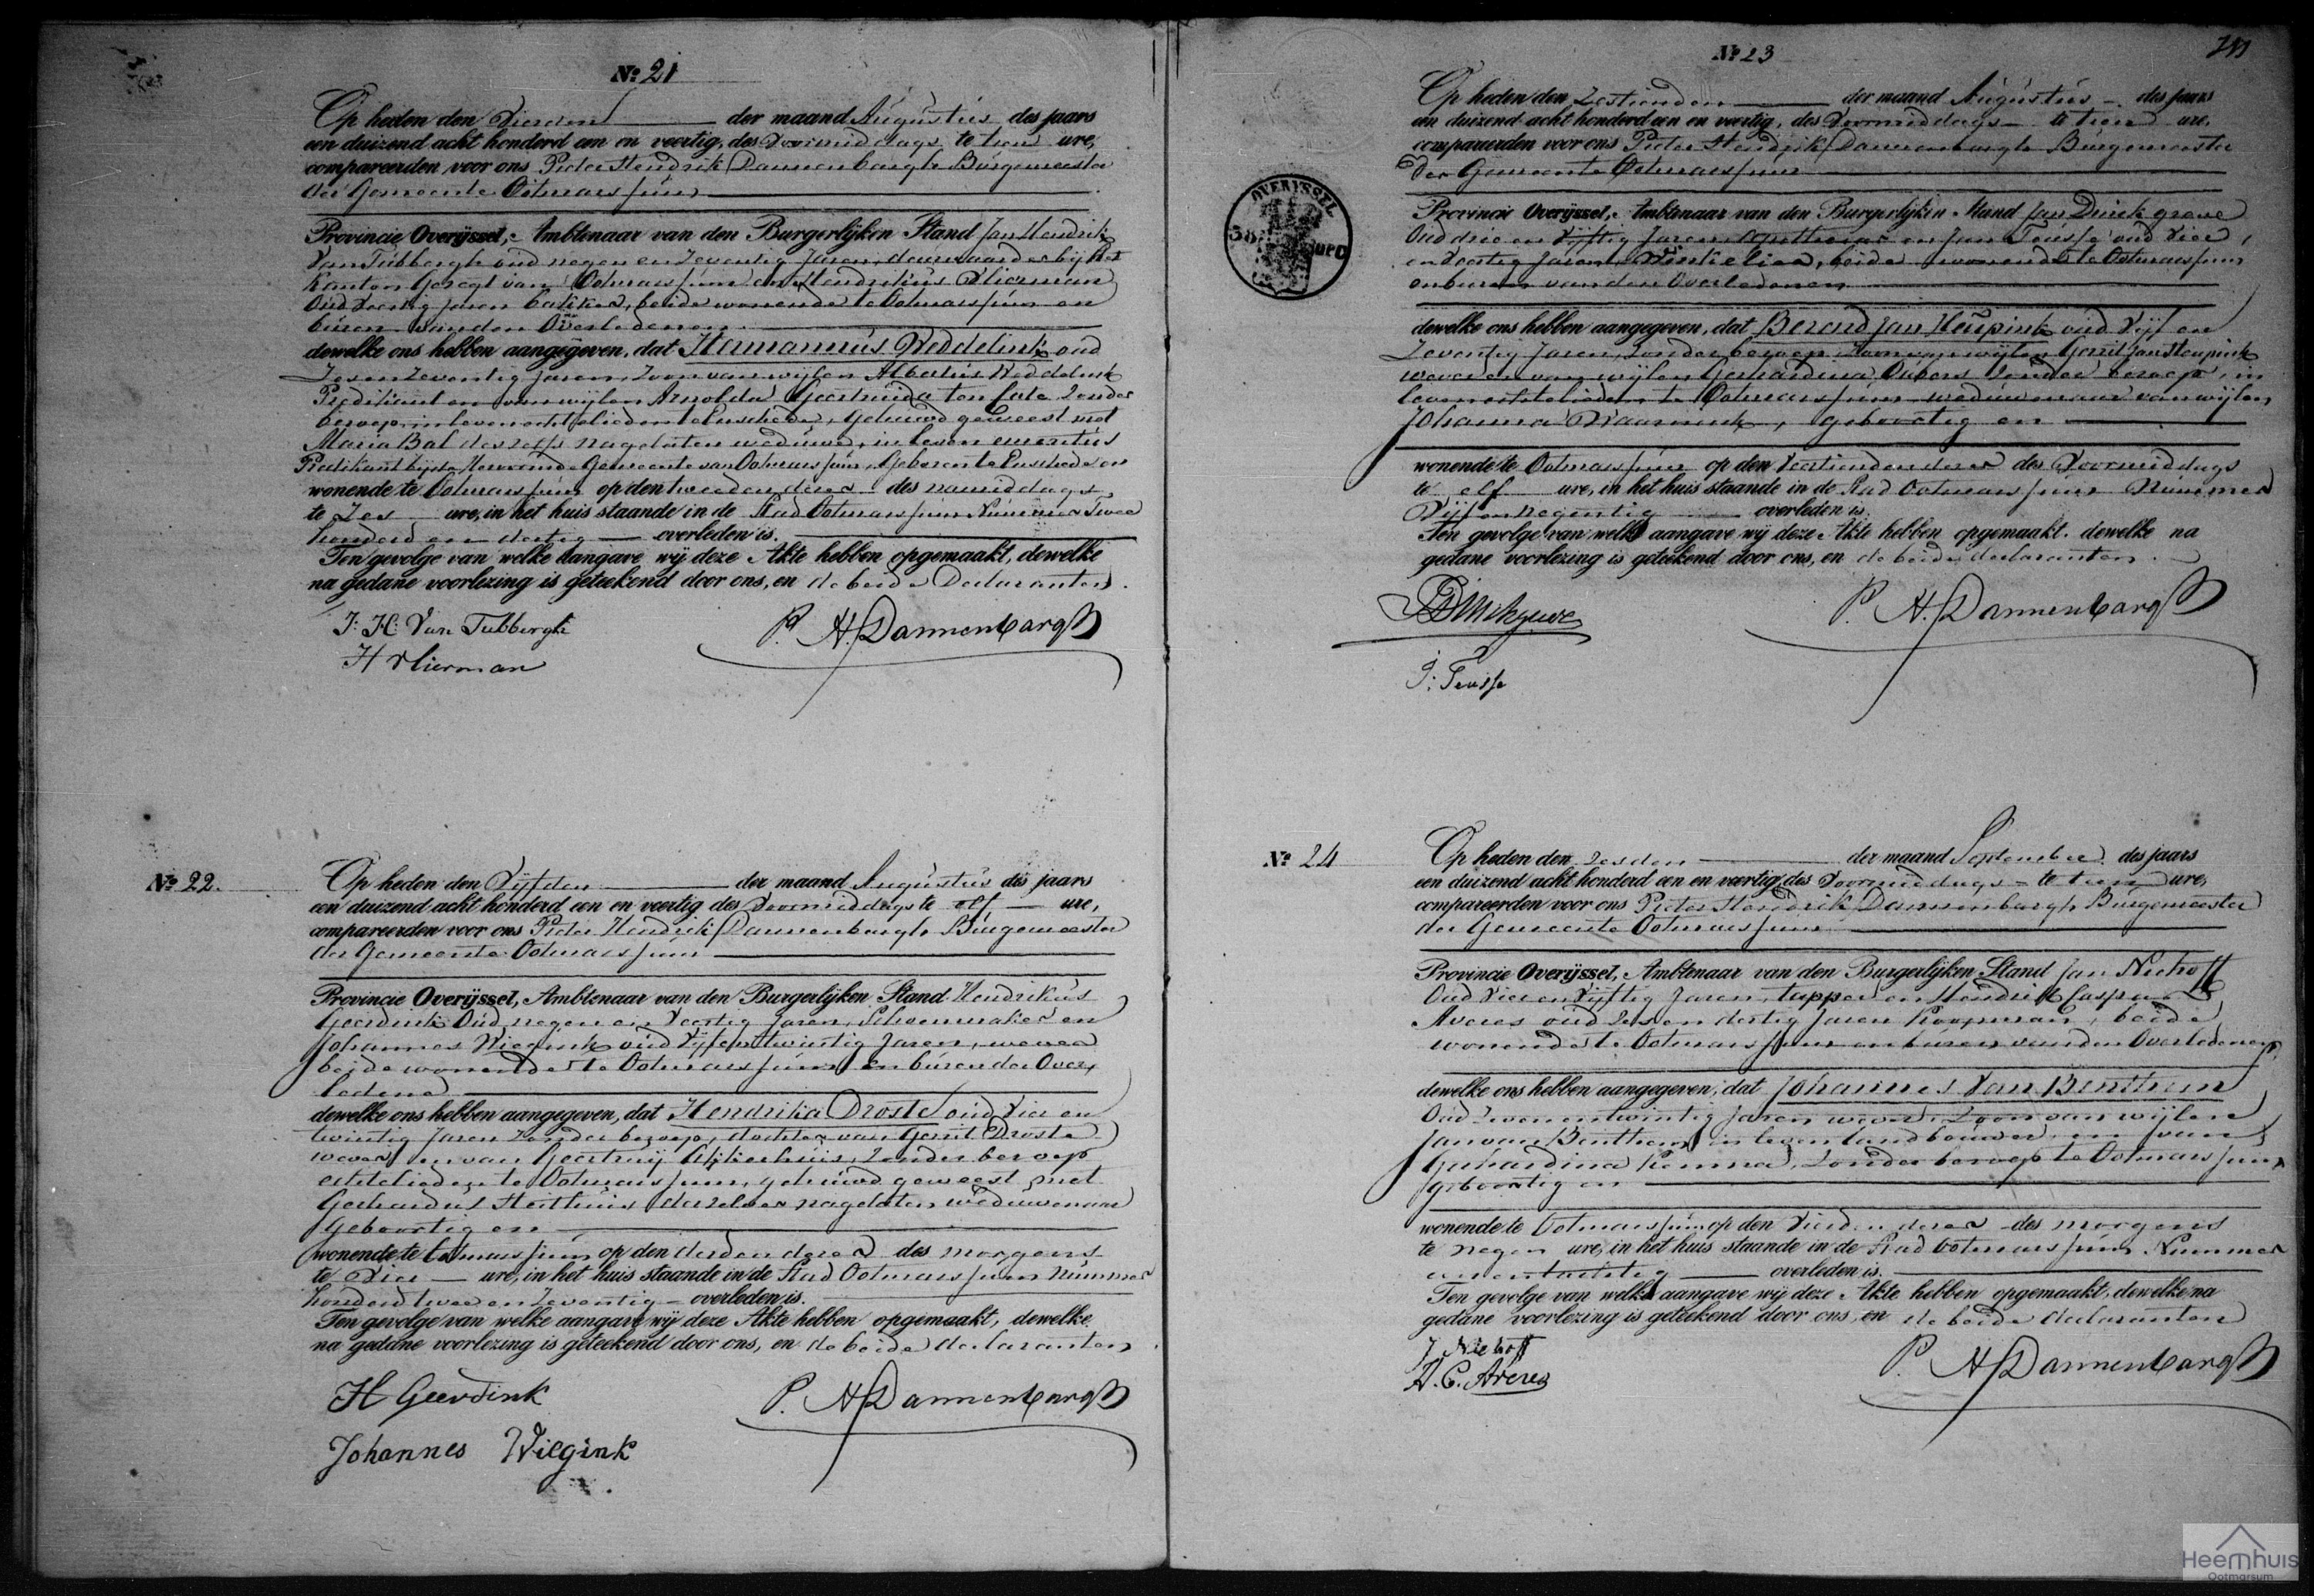 Nº 21
Op heden den Vierden der maand Augustus des jaars
een duizend acht honderd een en veertig, des Voormiddags te tien ure,
compareerden voor ons Pieter Hendrik Dannenbargh Burgemeester
der Gemeente Ootmarssum
Provincie Overijssel, Ambtenaar van den Burgerlijken Stand Jan Hendrik
Van Tubbergh oud negen en Zeventig Jaren, deurwaarder bij het
Kanton Geregt van Ootmarssum en Hendrikus Vlierman
Oud Veertig Jaren bakker, beide wonende te Ootmarssum en
buren van den Overledenen
dewelke ons hebben aangegeven, dat Hermannus Weddelink oud
Zes en Zeventig Jaren, Zoon van wijlen Albertus Weddelink
Predikant en van wijlen Arnolda Geertruida ten Cate Zonder
beroep, in leven echtelieden te Enschede, gehuwd geweest met
Maria Bal deszelfs nagelaten weduwe, in leven emeritus
Predikant bij de Hervormde Gemeente van Ootmarssum, Geboren te Enschede en
wonende te Ootmarssum op den tweeden dezer des namiddags
te Zes ure, in het huis staande in de Stad Ootmarssum Nummer Twee
honderd en dertig overleden is.
Ten gevolge van welke aangave wij deze Akte hebben opgemaakt, dewelke
na gedane voorlezing is geteekend door ons, en de beide Declaranten.
J: H: Van Tubbergh
P. H. Dannenbargh
H Vlierman
Nº 22.
Op heden den Vijfden der maand Augustus des jaars
een duizend acht honderd een en veertig des Voormiddags te elf ure,
compareerden voor ons Pieter Hendrik Dannenbargh Burgemeester
der Gemeente Ootmarssum
Provincie Overijssel, Ambtenaar van den Burgerlijken Stand Hendrikus
Geerdink Oud negen en Veertig Jaren, Schoenmaker en
Johannes Wiegink oud Vijf en twintig Jaren, wever
beide wonende te Ootmarssum en buren der Over,
ledene
dewelke ons hebben aangegeven, dat Hendrika Droste oud Vier en
twintig Jaren Zonder beroep, dochter van Gerrit Droste
wever en van Geertruij Zonder beroep
echtelieden te Ootmarssum, gehuwd geweest met
Gerhardus Heithuis derzelver nagelaten weduwenaar
Geboortig en
wonende te Ootmarssum op den derden dezer des morgens
te Vier ure, in het huis staande in de Stad Ootmarssum Nummer
honderd twee en Zeventig overleden is.
Ten gevolge van welke aangave wij deze Akte hebben opgemaakt, dewelke
na gedane voorlezing is geteekend door ons, en de beide declaranten.
H Geerdink
P. H Dannenbargh
Johannes Wiegink
Nº 23
OVERYSSEL
Op heden den Zestienden der maand Augustus des jaars
een duizend acht honderd een en veertig, des Voormiddags te tien ure,
compareerden voor ons Pieter Hendrik Dannenbargh Burgemeester
Der Gemeente Ootmarssum
Provincie Overijssel, Ambtenaar van den Burgerlijken Stand Jan Dinckgreve
Oud drie en Vijftig Jaren Apotheker en Jan Teusse oud Vier
en Veertig Jaren, Winkelier, beide wonende te Ootmarssum
en buren van den Overledenen
dewelke ons hebben aangegeven, dat Berend Jan Heupink oud Vijf en
Zeventig Jaren, Zonder beroep Zoon van wijlen Gerrit Jan Heupink
wever en van wijlen Gerhardina Zonder beroep, in
leven echtelieden te Ootmarssum weduwenaar van wijlen
Johanna, geboortig en
wonende te Ootmarssum op den Veertienden dezer des Voormiddags
te elf ure, in het huis staande in de Stad Ootmarssum Nummer
Vijf en Negentig overleden is.
Ten gevolge van welke aangave wij deze Akte hebben opgemaakt. dewelke na
gedane voorlezing is geteekend door ons, en de beide declaranten.
P. H. Dannenbargh
J: Teusse
Nº 24
Op heden den Zesden der maand September des jaars
een duizend acht honderd een en veertig, des Voormiddags te tien ure,
compareerden voor ons Pieter Hendrik Dannenbargh Burgemeester
der Gemeente Ootmarssum
Provincie Overijssel, Ambtenaar van den Burgerlijken Stand Jan Niehoff
Oud Vier en Vijftig Jaren, tapper en Hendrik Casper
Averes oud Zes en dertig Jaren Koopman, beide
wonende te Ootmarssum en buren van den Overledenen
dewelke ons hebben aangegeven, dat Johannes Van Benthem
Oud Zeven en twintig Jaren wever, Zoon van wijlen
Jan van Benthem in leven landbouwer en van
Gerhardina Zonder beroep te Ootmarssum
geboortig en
wonende te Ootmarssum op den Vierden dezer des morgens
te negen ure, in het huis staande in de Stad Ootmarssum Nummer
een en tachtig overleden is.
Ten gevolge van welke aangave wij deze Akte hebben opgemaakt, dewelke na
gedane voorlezing is geteekend door ons, en de beide declaranten
J Niehoff
P. H Dannenbargh
H. C. Averes
Heemhuis
Ootmarsum